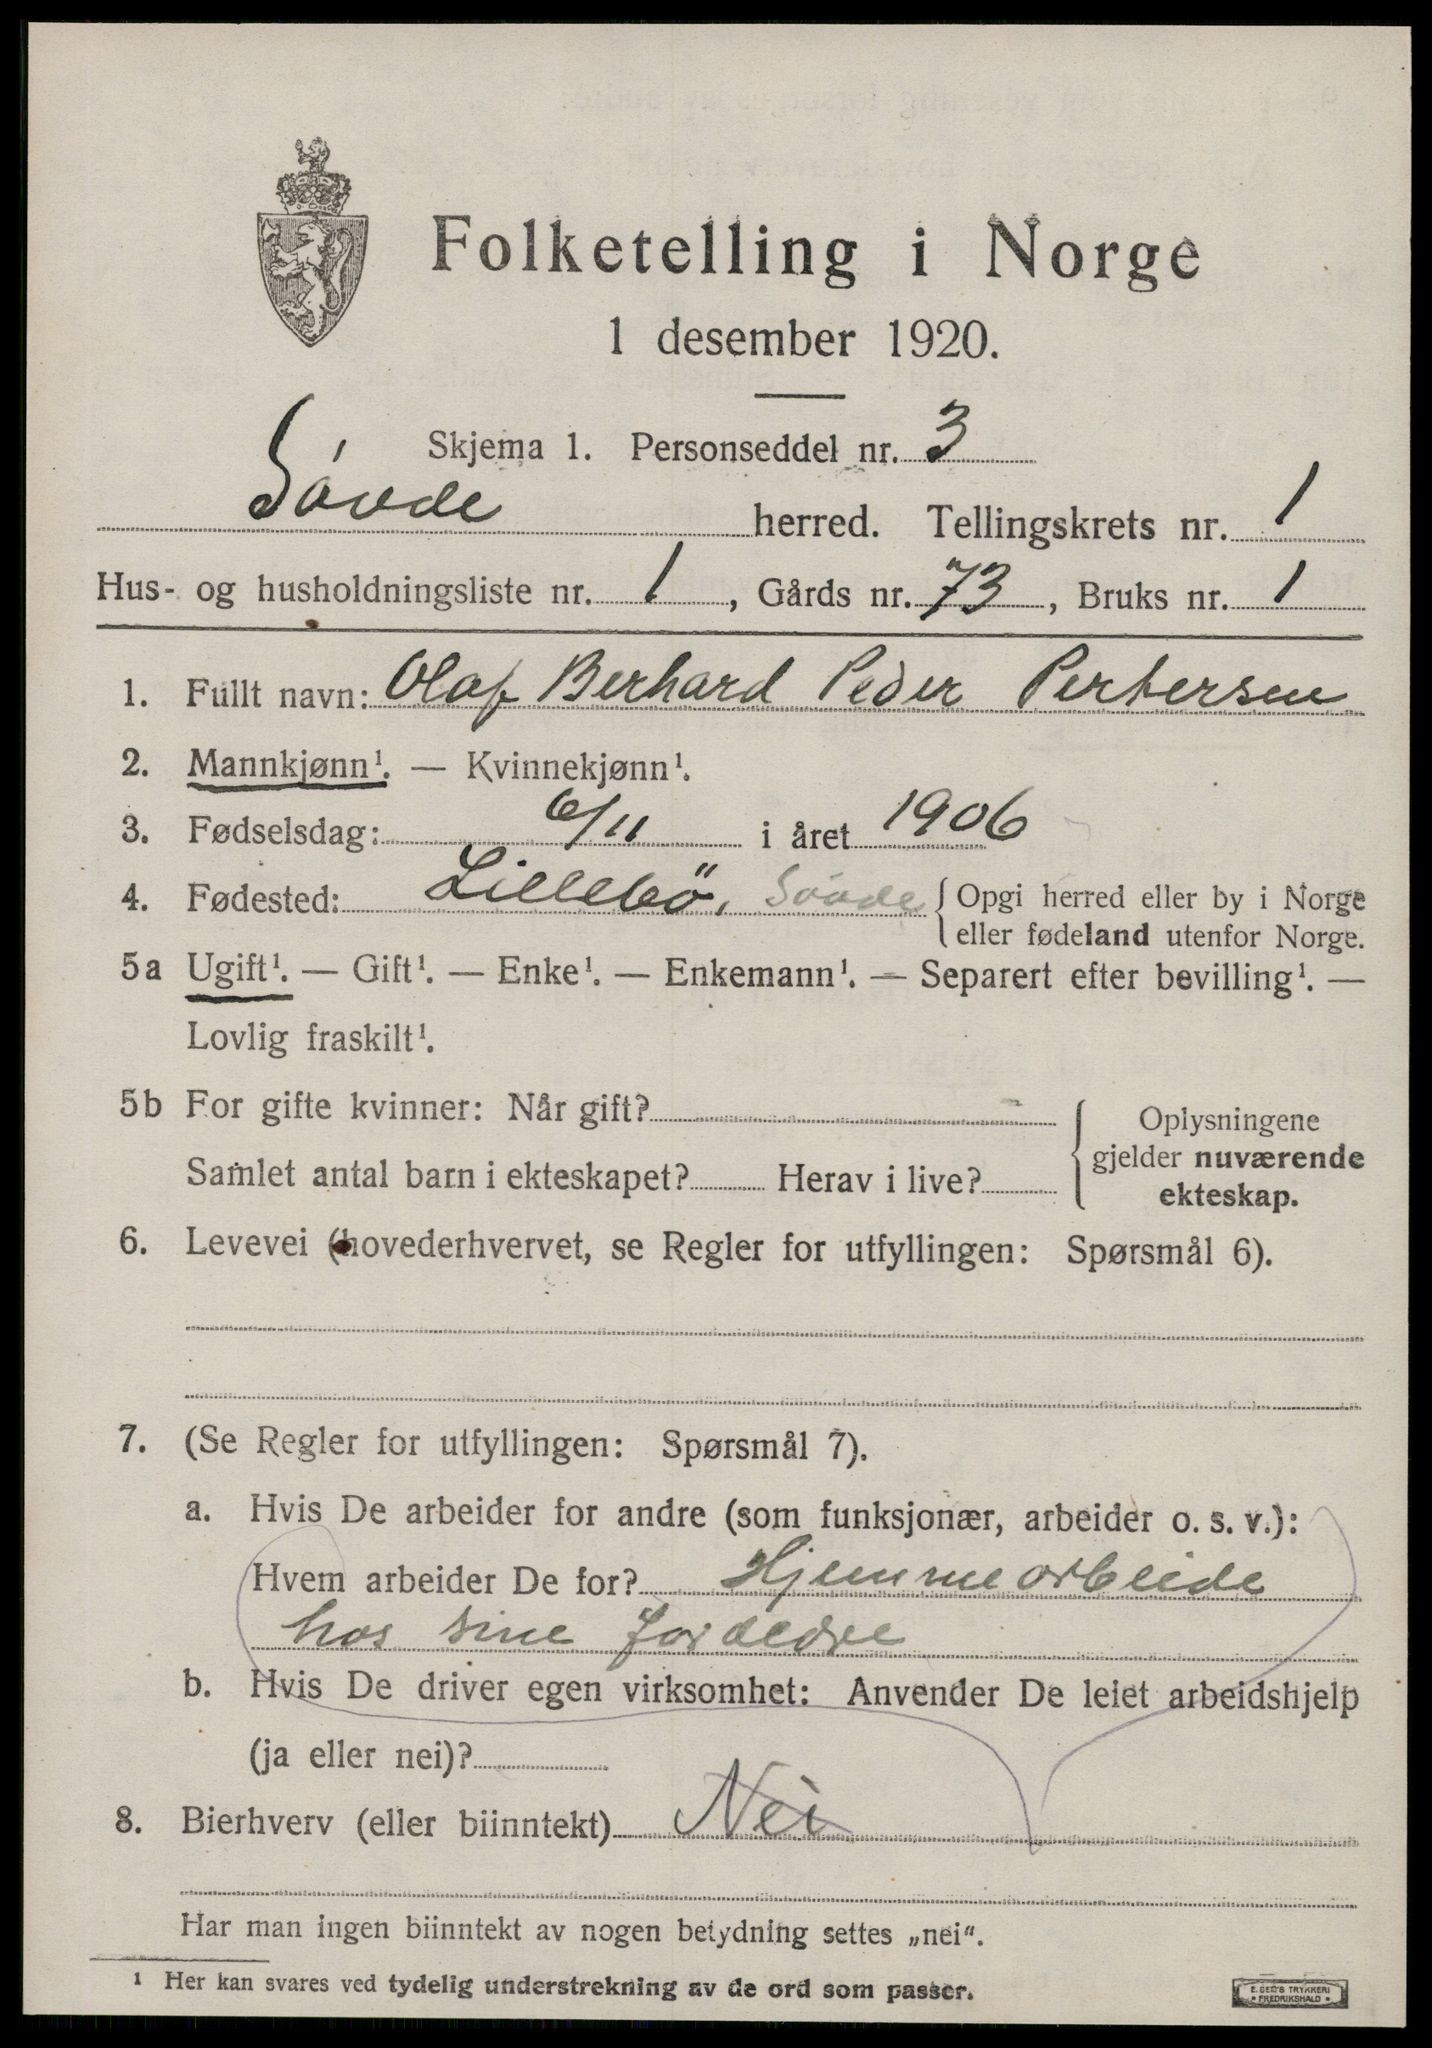 Folketelling i Norge
1 desember 1920.
Skjema 1. Personseddel nr. 3
Søvde herred. Tellingskrets nr. 1
Hus- og husholdningsliste nr. 1, Gårds nr. 73, Bruks nr. 1
1. Fullt navn: Olaf Berhard Peder Pertersen
2. Mannkjønn¹. — Kvinnekjønn¹.
3. Fødselsdag: 6/11 i året 1906
4. Fødested: Lillebö, Søvde { Opgi herred eller by i Norge
eller fødeland utenfor Norge.
5a Ugift¹. — Gift¹. — Enke¹. — Enkemann¹. — Separert efter bevilling¹. —
Lovlig fraskilt¹.
5b For gifte kvinner: Når gift?
Samlet antal barn i ekteskapet? Herav i live?
{ Oplysningene
gjelder nuværende
ekteskap.
6. Levevei (hovederhvervet, se Regler for utfyllingen: Spørsmål 6).
7. (Se Regler for utfyllingen: Spørsmål 7).
a. Hvis De arbeider for andre (som funksjonær, arbeider o. s. v.):
Hvem arbeider De for? Hjemmearbeide
hos sine foreldre
b. Hvis De driver egen virksomhet: Anvender De leiet arbeidshjelp
(ja eller nei)?
8. Bierhverv (eller biinntekt) Nei
Har man ingen biinntekt av nogen betydning settes „nei“.
¹ Her kan svares ved tydelig understrekning av de ord som passer.
E. SEM'S TRYKKERI
• FREDRIKSHALD •